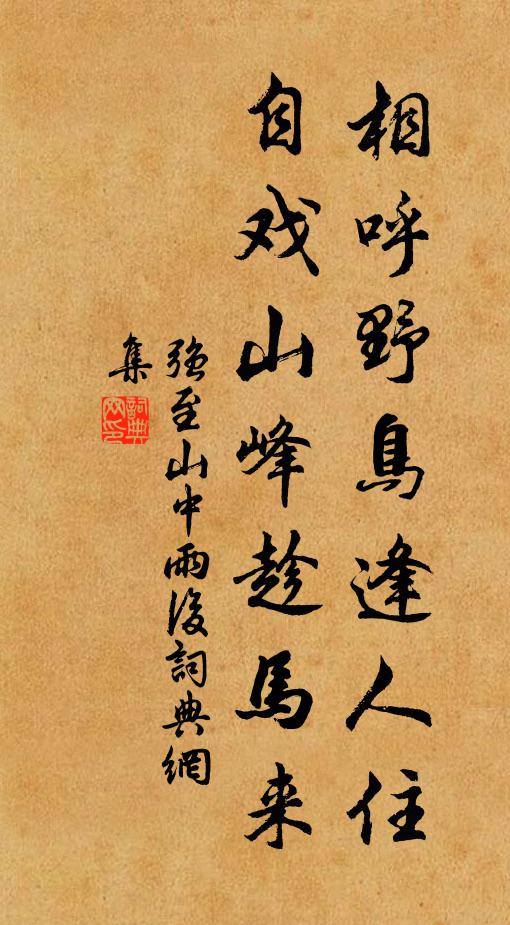 相呼野鳥逢人住
自戏山峰趁馬来
强至山中雨後詞典網
集
詞典網印